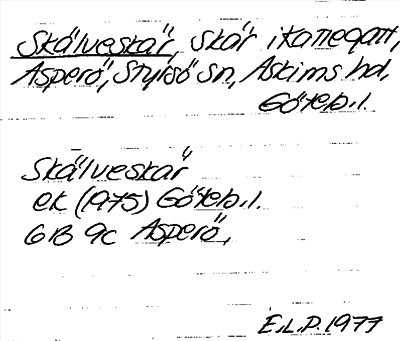 Skälveskär, skär i Kattegatt,
Asperö, Styrsö sn, Askims hd,
Göteb.l.
Skälveskär
ek (1975) Göteb.l.
6B 9c Asperö,
E.L.P. 1977